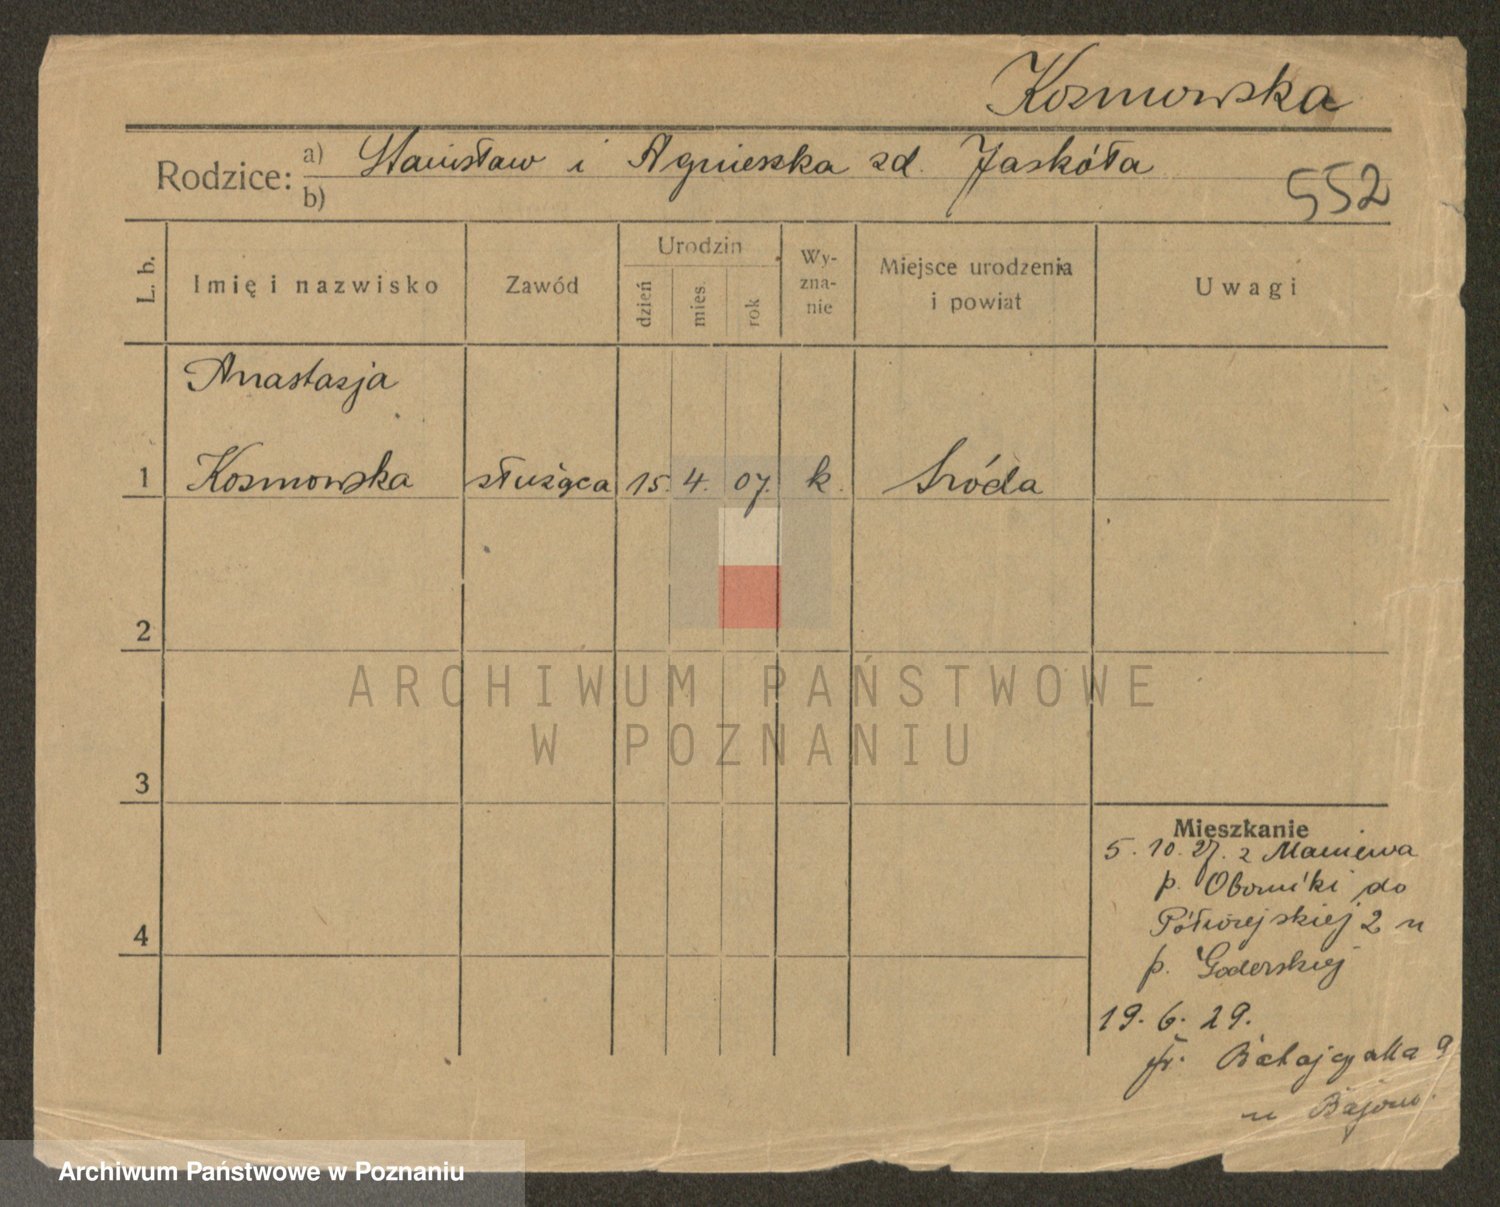 Kosmowska
Rodzice: a) Stanisław i Agnieszka zd. Jaskóła
b)
552
L. b.
Imię i nazwisko
Zawód
Urodzin
dzień
mies.
rok
Wy-
zna-
nie
Miejsce urodzenia
i powiat
Uwagi
Anastazja
1 Kosmowska służąca 15. 4. 07. k. Środa
2
ARCHIWUM PAŃSTWOWE
W POZNANIU
3
Mieszkanie
5. 10. 27. z Maniewa
p. Oborniki do
Półwiejskiej 2 u
4
p. Goderskiej
19. 6. 29.
9
u
Archiwum Państwowe w Poznaniu